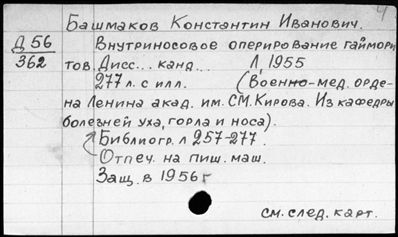 4
Башмаков Константин Иванович.
Д 56
362
Внутриносовое оперирование гаймори
тов. Дисс... канд... Л, 1955
277 л. с илл. (Военно-мед. орде-
на Ленина акад. им. С.М. Кирова. Из кафедры
болезней уха, горла и носа).
Библиогр. л 257-277.
Отпеч. на пиш. маш.
Защ. в 1956 г
см. след. карт.